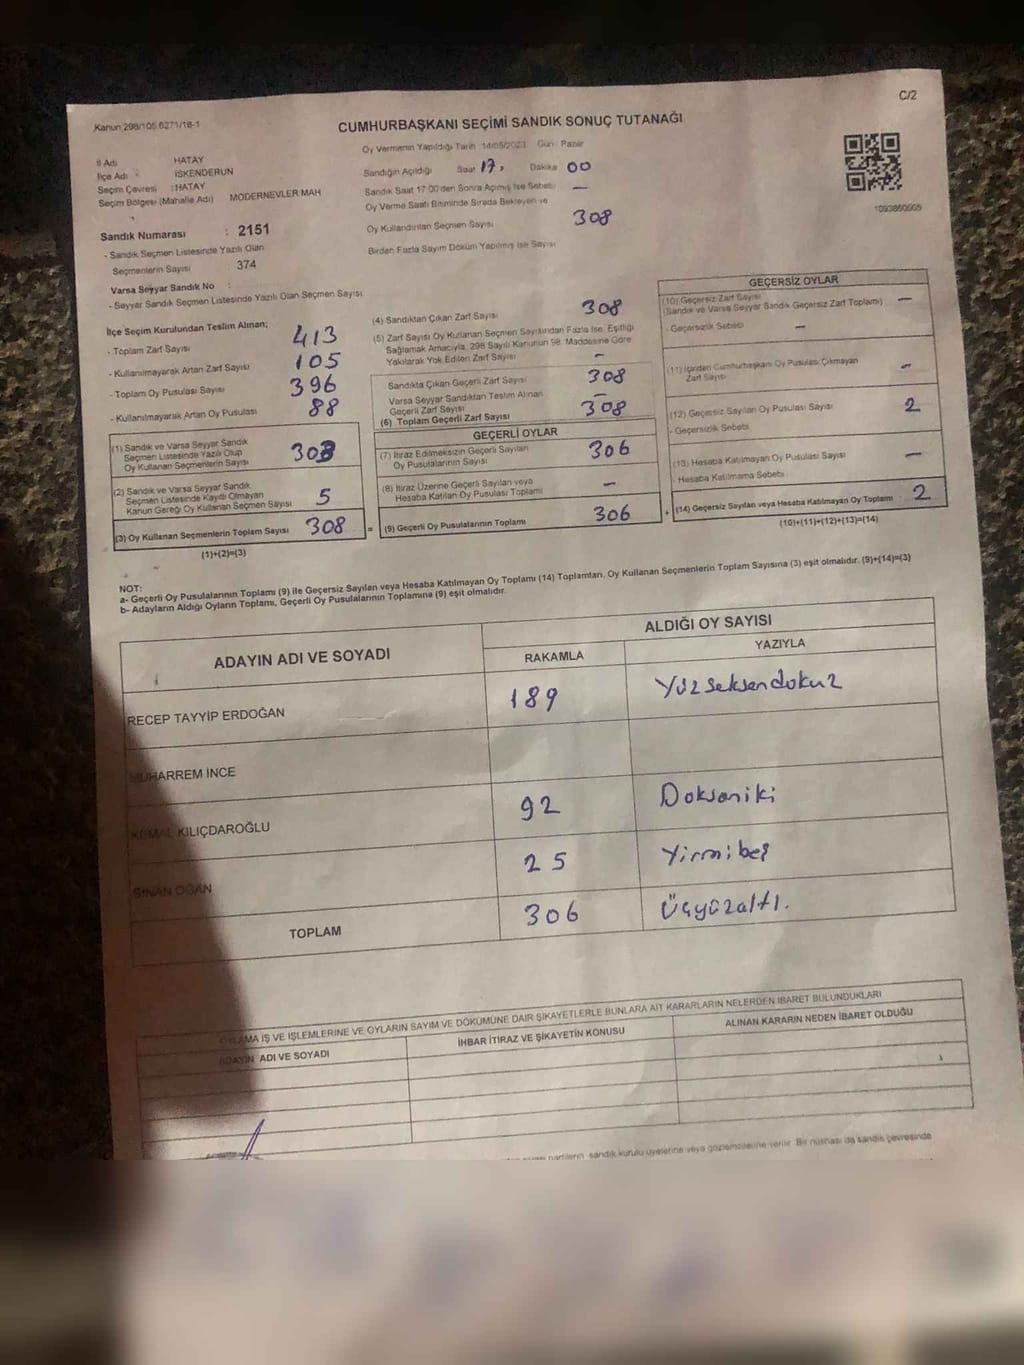 C/2
Kanun 298/105 6271/18-1
CUMHURBAŞKANI SEÇİMİ SANDIK SONUÇ TUTANAĞI
İl Adı HATAY
İlçe Adı İSKENDERUN
Seçim Çevresi : HATAY
Seçim Bölgesi (Mahalle Adı) MODERNEVLER MAH
Sandık Numarası : 2151
- Sandık Seçmen Listesinde Yazılı Olan
Seçmenlerin Sayısı 374
Varsa Seyyar Sandık No :
- Seyyar Sandık Seçmen Listesinde Yazılı Olan Seçmen Sayısı
Oy Vermenin Yapıldığı Tarih 14/05/2023 Gün : Pazar
Sandığın Açıldığı Saat 17, Dakika 00
Sandık Saat 17:00'den Sonra Açılmış İse Sebebi —
Oy Verme Saati Bitiminde Sırada Bekleyen ve
Oy Kullandırılan Seçmen Sayısı 308
Birden Fazla Sayım Döküm Yapılmış İse Sayısı
İlçe Seçim Kurulundan Teslim Alınan;
- Toplam Zarf Sayısı 413
- Kullanılmayarak Artan Zarf Sayısı 105
- Toplam Oy Pusulası Sayısı 396
- Kullanılmayarak Artan Oy Pusulası 88
(1) Sandık ve Varsa Seyyar Sandık
Seçmen Listesinde Yazılı Olup
Oy Kullanan Seçmenlerin Sayısı 303
(2) Sandık ve Varsa Seyyar Sandık
Seçmen Listesinde Kaydı Olmayan
Kanun Gereği Oy Kullanan Seçmen Sayısı 5
(3) Oy Kullanan Seçmenlerin Toplam Sayısı 308 =
(1)+(2)=(3)
(4) Sandıktan Çıkan Zarf Sayısı 308
(5) Zarf Sayısı Oy Kullanan Seçmen Sayısından Fazla İse, Eşitliği
Sağlamak Amacıyla, 298 Sayılı Kanunun 98. Maddesine Göre
Yakılarak Yok Edilen Zarf Sayısı —
Sandıkta Çıkan Geçerli Zarf Sayısı 308
Varsa Seyyar Sandıktan Teslim Alınan
Geçerli Zarf Sayısı —
(6) Toplam Geçerli Zarf Sayısı 308
GEÇERLİ OYLAR
(7) İtiraz Edilmeksizin Geçerli Sayılan
Oy Pusulalarının Sayısı 306
(8) İtiraz Üzerine Geçerli Sayılan veya
Hesaba Katılan Oy Pusulası Toplamı —
(9) Geçerli Oy Pusulalarının Toplamı 306 +
GEÇERSİZ OYLAR
(10) Geçersiz Zarf Sayısı
(Sandık ve Varsa Seyyar Sandık Geçersiz Zarf Toplamı) —
- Geçersizlik Sebebi —
(11) İçinden Cumhurbaşkanı Oy Pusulası Çıkmayan
Zarf Sayısı —
(12) Geçersiz Sayılan Oy Pusulası Sayısı 2
- Geçersizlik Sebebi
(13) Hesaba Katılmayan Oy Pusulası Sayısı —
- Hesaba Katılmama Sebebi
(14) Geçersiz Sayılan veya Hesaba Katılmayan Oy Toplamı 2
(10)+(11)+(12)+(13)=(14)
NOT:
a- Geçerli Oy Pusulalarının Toplamı (9) ile Geçersiz Sayılan veya Hesaba Katılmayan Oy Toplamı (14) Toplamları, Oy Kullanan Seçmenlerin Toplam Sayısına (3) eşit olmalıdır. (9)+(14)=(3)
b- Adayların Aldığı Oyların Toplamı, Geçerli Oy Pusulalarının Toplamına (9) eşit olmalıdır.
ADAYIN ADI VE SOYADI
ALDIĞI OY SAYISI
RAKAMLA YAZIYLA
RECEP TAYYİP ERDOĞAN 189 Yüzseksendokuz
MUHARREM İNCE
KEMAL KILIÇDAROĞLU 92 Doksaniki
SİNAN OĞAN 25 Yirmibeş
TOPLAM 306 Üçyüzaltı.
OYLAMA İŞ VE İŞLEMLERİNE VE OYLARIN SAYIM VE DÖKÜMÜNE DAİR ŞİKAYETLERLE BUNLARA AİT KARARLARIN NELERDEN İBARET BULUNDUKLARI
ADAYIN ADI VE SOYADI İHBAR İTİRAZ VE ŞİKAYETİN KONUSU ALINAN KARARIN NEDEN İBARET OLDUĞU
partilerin sandık kurulu üyelerine veya gözlemcilerine verilir. Bir nüshası da sandık çevresinde